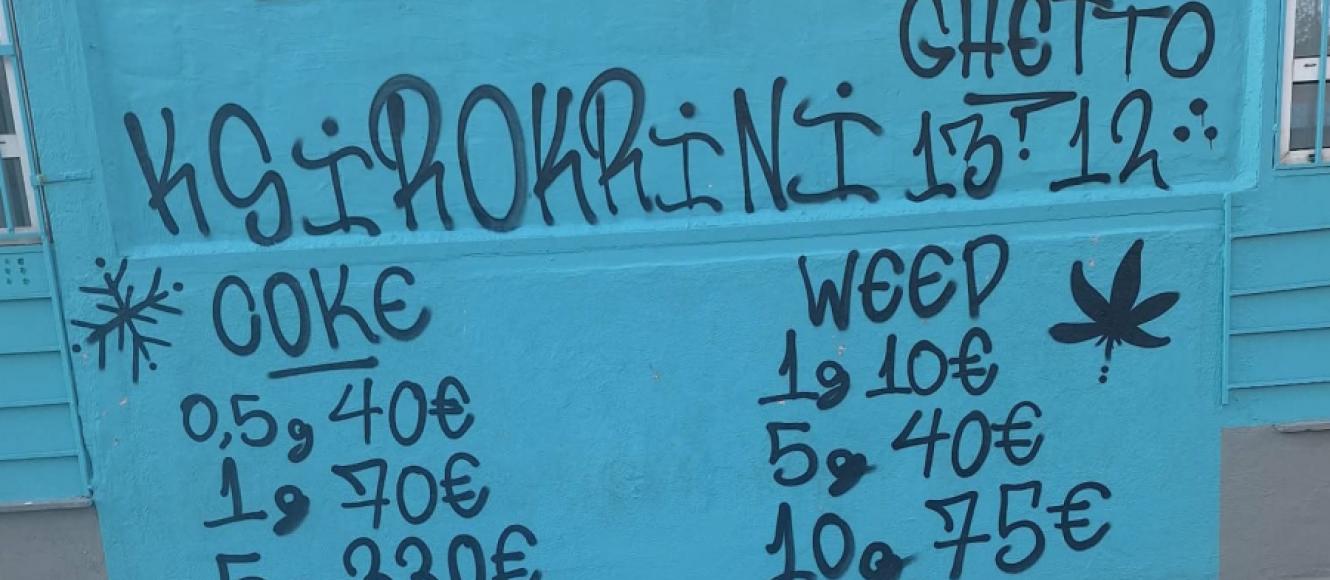 GHETTO
KSiROKRiNi 13?12
COKE
0,5g 40€
1g 70€
5g 330€
WEED
1g 10€
5g 40€
10g 75€